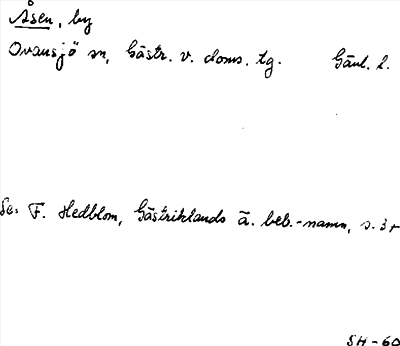 Åsen, by
Ovansjö sn, Gästr. v. doms. tg. Gävl. l.
Se: F. Hedblom, Gästriklands ä. beb.-namn, s. 3
SH-60